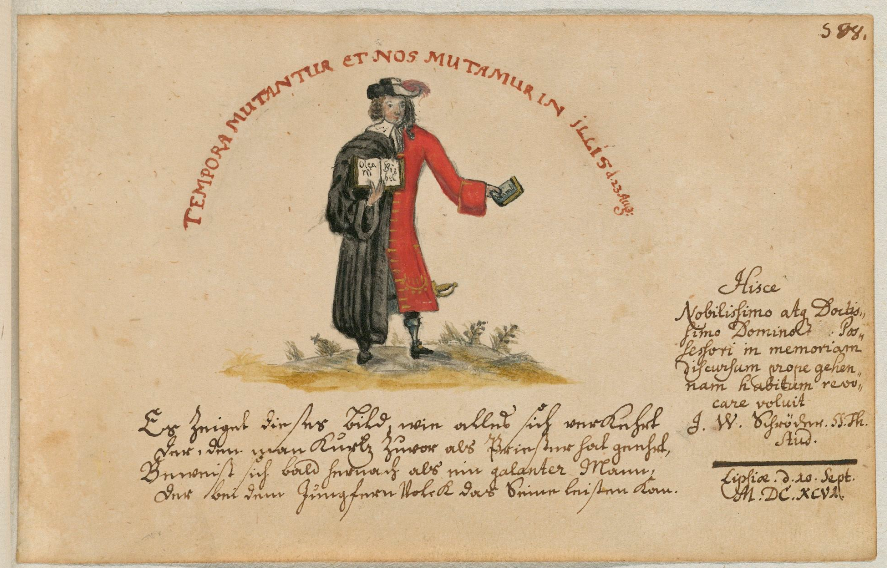 598.
TEMPORA MUTANTUR ET NOS MUTAMUR IN ILLIS d. 23. Aug.
Bi
bel
Es Zeiget dieses Bild, wie alles sich verkehrt
Der, den man Kurtz Zuvor als Priester hat geehrt,
Beweist sich bald hernach als ein galanter Mann,
Der bei dem Jungfern Volck das Seine leisten Kan.
Hisce
Nobilissimo atq Doctis,,
simo Domino Pos,,
sessori in memoriam
discursum prope gehen,,
nam habitum revo,,
care voluit
J. W. Schröder. SS. Th.
Stud.
Lipsiæ. d. 10. Sept.
M. DC. XCVI.